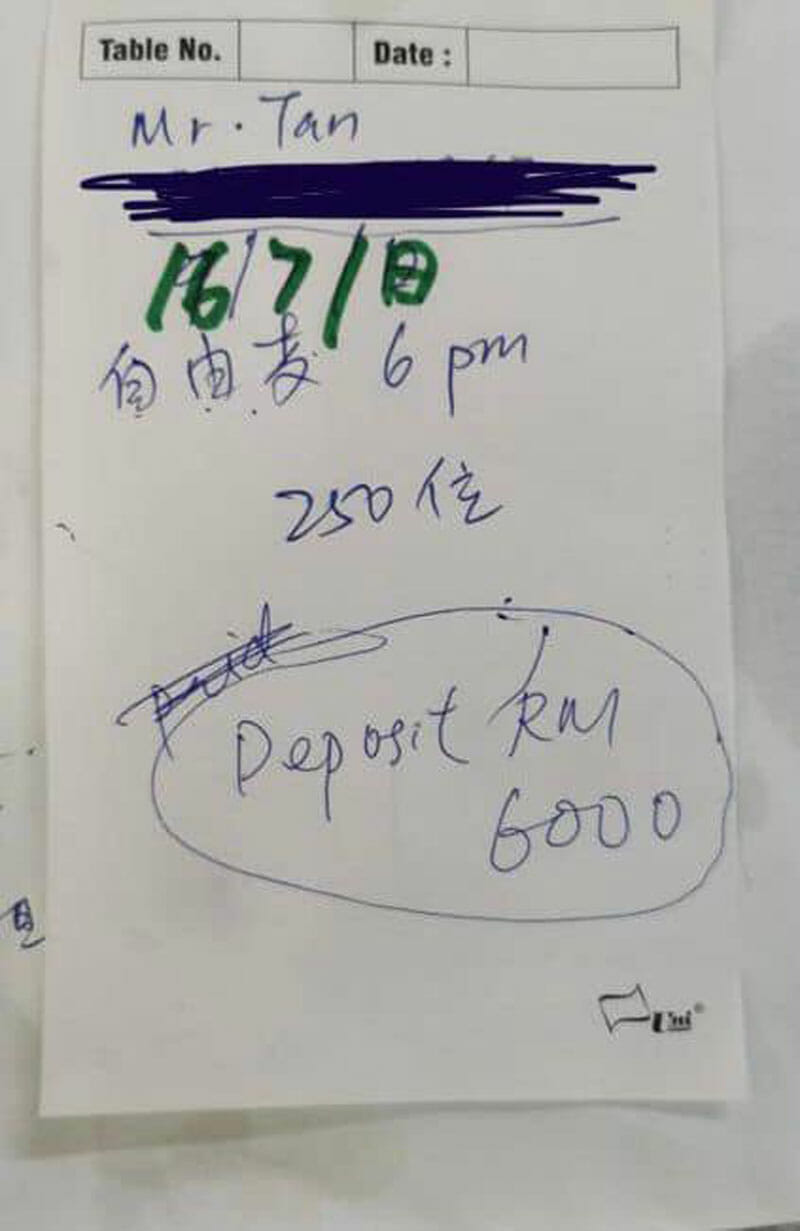 Table No. Date :
Mr. Tan
16/7/日
自由麦 6 pm
250位
Paid
Deposit RM
6000
Uni®